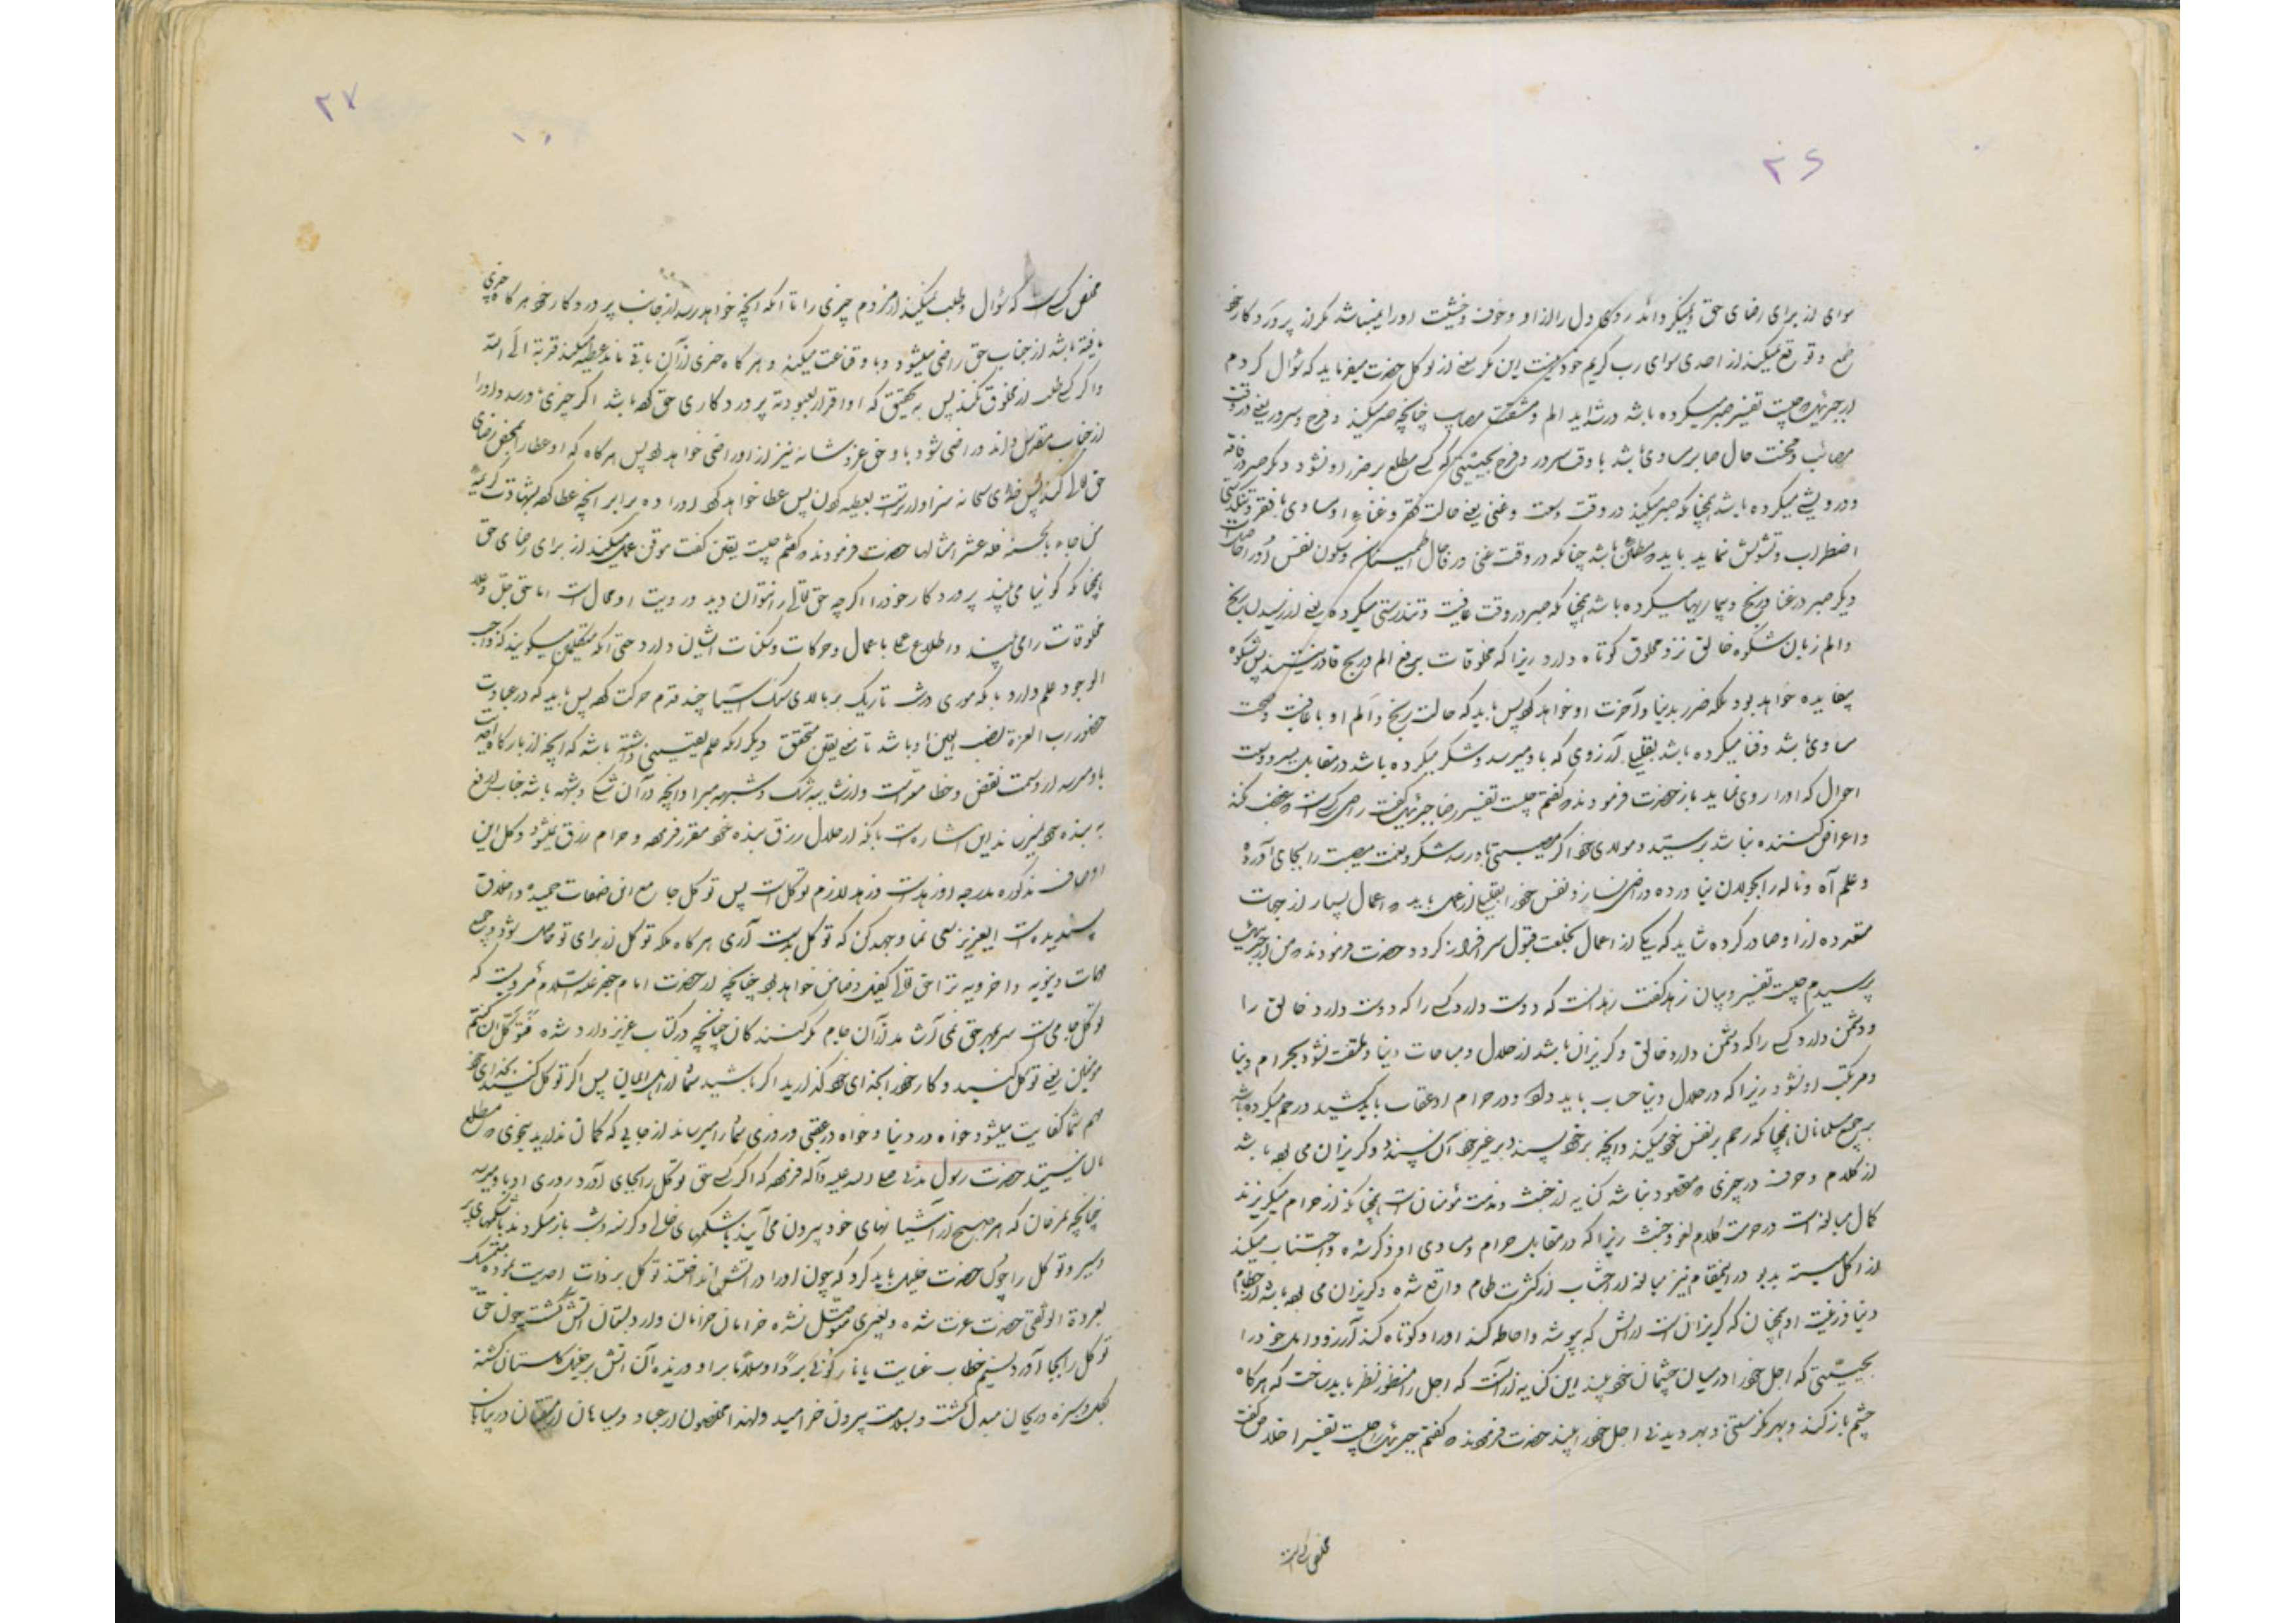 ۲۶
سوای از برای رضای حق و نمیگرداند روی دل را از او و خوف و خشیت او را نمیباشد مگر از پروردکار خود
طمع و توقع نمیکند از احدی سوای رب کریم خود این مکر معنی از توکل حضرت میفرماید که سؤال کردم
از جبرئیل چیست تفسیر صبر میکرده باشد در شداید الم و مشقت مصایب چنانچه صبر میکند در فرح و سرور یعنی در وقت
مصائب و محنت حال صابر مساوی باشد با وقت سرور و فرح بحیثیتی که کسی مطلع بر ضرر او نشود دیگر صبر در فاقه
و درویشی میکرده باشد همچنانکه صبر میکند در وقت وسعت و غنی یعنی حالت فقر و غنای او مساوی با فقر و تنگدستی
اضطراب و تشویش ننماید باید مطمئن باشد چنانکه در وقت غنی در حال اطمینان و سکون نفس او را حاصل است
دیگر صبر در عنا و رنج و بیماریها میکرده باشد همچنانکه صبر در وقت عافیت و تندرستی میکرده یعنی از رسیدن رنج
و الم زبان شکوه خالق نزد مخلوق کوتاه دارد زیرا که مخلوقات برفع الم و رنج قادر نیستند پس شکوه
بیفایده خواهد بود بلکه ضرر بدنیا و آخرت او خواهد کرد پس باید که حالت رنج و الم او با عافیت و صحت
مساوی باشد و قناعت میکرده باشد بقلیل آرزوی که باو میرسد و شکر میکرده باشد در مقابل یسر و وسعت
احوال که او را روی نماید باز حضرت فرمودند گفتم چیست تفسیر رضا جبرئیل گفت راضی کسی است که غضب نکند
و اعراض کننده نباشد بر سیّد و مولای خود اگر مصیبتی باو رسد شکر و نعمت مصیبت را بجای آورده
و علم آه و ناله را بجولان نیاورده و راضی نسازد نفس خود را بقلیل از عمل باید که اعمال بسیار از جهات
متعدده از او صادر کرده شاید که یکی از اعمال بخلعت قبول سرافراز کردد حضرت فرمودند من از جبرئیل
پرسیدم چیست تفسیر و بیان زهد گفت زهد آنست که دوست دارد کسی را که دوست دارد خالق را
و دشمن دارد کسی را که دشمن دارد خالق و گریزان باشد از حلال و مباحات دنیا و ملتفت نشود بحرام دنیا
و مرتکب او نشود زیرا که در حلال دنیا حساب باید داد و در حرام او عقاب باید کشید و رحم میکرده باشد
بر جمیع مسلمانان همچنانکه رحم بر نفس خود میکند و آنچه بر خود پسندد بر غیر خود آن پسندد و گریزان می بوده باشد
از کلام و حرف در چیزی که مقصود نباشد کنایه از خبث و مذمت مؤمنان است همچنانکه از حرام میگریزند
کمال مبالغه است در حرمت کلام لغو و خبث زیرا که در مقابل حرام و مساوی او ذکر شده و اجتناب میکند
از اکل میته بدبو در اینمقام نیز مبالغه از اجتناب از کثرت طعام واقع شده و گریزان می بوده باشد از حطام
دنیا و زینت او همچنان که گریزان است از آتش که بپوشد و احاطه کند او را و کوتاه کند آرزو و امل خود را
بحیثیتی که اجل خود را در میان چشمان خود بیند این کنایه از آنست که اجل را منظور نظر باید ساخت که هرگاه
چشم باز کند و بهر نگریستنی و بهر دیدنی اجل خود را بیند حضرت فرمودند گفتم جبرئیل را چیست تفسیر اخلاص گفت
مخلص کسی است
۲۷
مخلص کسی است که سؤال و طلب نمیکند از مردم چیزی را تا آنکه آنچه خواهد رسد از جانب پروردکار خود هرگاه چیزی
یافته باشد از جناب حق راضی میشود و باو قناعت میکند و هرگاه چیزی از آن باقی ماند عطیه میکند قربة الی الله
و اگر کسی طلب از مخلوق نکند پس به تحقیق که او اقرار بعبودیة پروردکاری حق کرده باشد اگر چیزی باو رسد و او را
از جناب مقدس داند و راضی شود باو حق عز و شانه نیز از او راضی خواهد بود پس هرگاه که او عطا را بمحض رضای
حق تعالی کند پس خدای سبحانه سزاوارتر است بعطیه کردن پس عطا خواهد کرد او را ده برابر آنچه عطا کرده بشهادت کریمه
من جاء بالحسنة فله عشر امثالها حضرت فرمودند گفتم چیست یقین گفت موقن عمل میکند از برای رضای حق
همچنانکه گوئیا می بیند پروردکار خود را اگرچه حق تعالی را نتوان دید و رویت او محال است اما حق جلّ و علا
مخلوقات را می بیند و اطلاع علی باعمال و حرکات و سکنات ایشان دارد حتی آنکه متکلمین میگویند که واجب
الوجود علم دارد باینکه موری در شب تاریک بر بالای سنگ آسیا چند قدم حرکت کرده پس باید که در عبادت
حضور رب العزة نصب العین او باشد تا معنی یقین متحقق دیگر آنکه علم یقینی داشته باشد که آنچه از بارگاه احدیت
باو میرسد از وصمت نقص و خطا معراست و از شایبه شک و شبهه مبرا و آنچه در آن شک و شبهه باشد جناب ارفع
به بنده خود نمیرساند این اشاره است باینکه از حلال رزق بنده خود مقرر فرموده و حرام رزق نمیشود و کل این
اوصاف مذکوره مدرجه او زهد است و زهد لازم توکل است پس توکل جامع این صفات حمیده و اخلاق
پسندیده است ایعزیز سعی نما و جهد کن که توکل بدست آری هرگاه ملکه توکل از برای تو حاصل شود و جمیع
مهمات دنیویه و اخرویه ترا حق تعالی کفیل و ضامن خواهد بود چنانچه از حضرت امام جعفر علیه السلام مرویست که
توکل جامی است سر بمهر حق نمی آشامد از آن جام مگر متوکلان چنانچه در کتاب عزیز وارد شده فتوکّلوا ان کنتم
مؤمنین یعنی توکل کنید و کار خود را بخدای خود گذارید اگر باشید شما از اهل ایمان پس اگر توکل کنید بخدای خود
مهم شما کفایت میشود خواه در دنیا و خواه در عقبی و روزی شما را میرساند از جایی که گمان ندارید بنحوی که مطلع
بآن نیستید حضرت رسول مدنی صلی الله علیه و آله فرموده که اگر کسی حق توکل را بجای آورد روزی او باو میرسد
چنانچه مرغان که هر صبح از آشیانهای خود بیرون می آیند با شکمهای خالی و گرسنه و شب باز میگردند با شکمهای پر
و سیر و توکل را چون حضرت خلیل باید کرد که چون او را در آتش انداختند توکل بر ذات احدیت نموده متمسک
بعروة الوثقی حضرت عزت شده و بغیری متوسل نشده خرامان خرامان وارد بستان آتش گشت چون حق
توکل را بجا آورد نسیم خطاب عنایت یا نار کونی برداً و سلاماً بر او وزیده آن آتش بر خلیل گلستان گشته
بگل و سبزه و ریحان مبدل گشت و بسلامت بیرون خرامید ولهذا مخلصون از عباد و سیاحان در بیابان